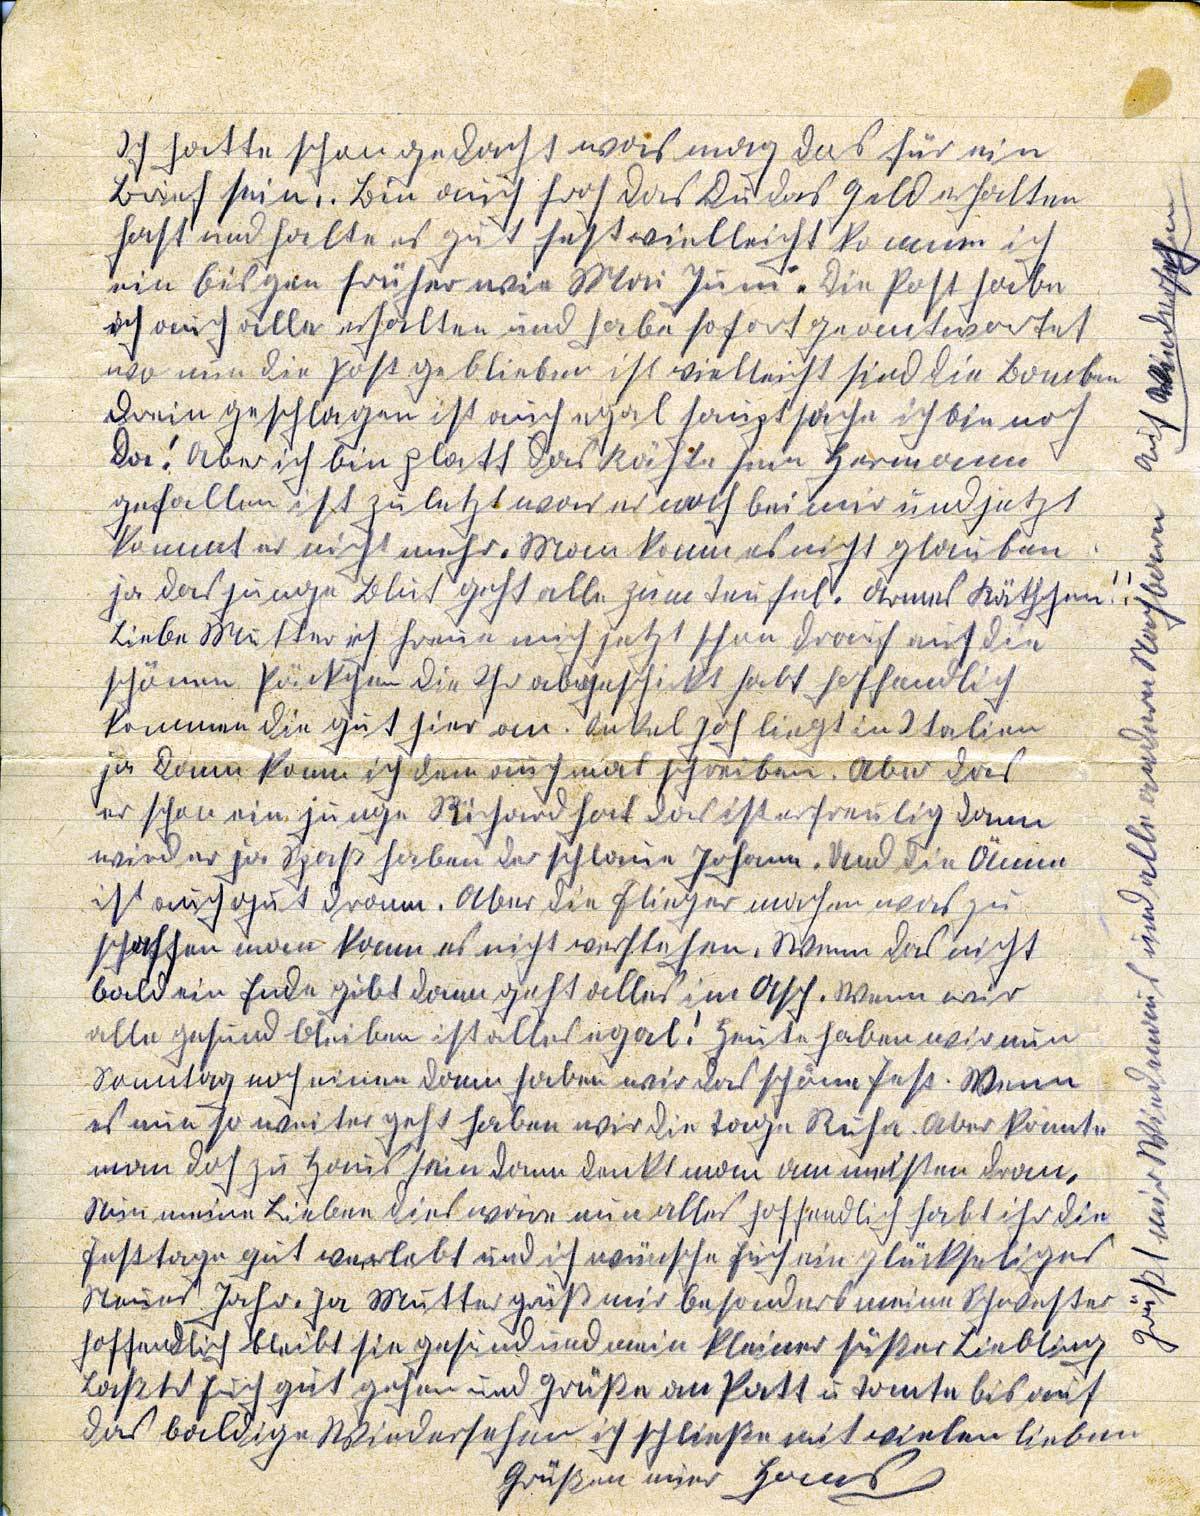 Ich hatte schon gedacht was mag das für ein
Brief sein.. Bin auch froh das Du das Geld erhalten
hast und halte es gut fest vielleicht komm ich
ein bisgen früher wie Mai Juni. Die Post habe
ich auch alle erhalten und habe sofort geantwortet
wo nun die Post geblieben ist vielleicht sind die Bomben
drein geschlagen ist auch egal hauptsache ich bin noch
Da! Aber ich bin platt das Käthe sein Hermann
gefallen ist zuletzt war er noch bei mir und jetzt
kommt er nicht mehr. Man kann es nicht glauben
ja das junge Blut geht alle zum Teufel. Armes Käthchen!!
Liebe Mutter ich freue mich jetzt schon drauf auf die
schönen Päckchen die Ihr abgeschickt habt hoffendlich
kommen die gut hier an. Onkel Joh liegt in Italien
ja dann kann ich dem auch mal schreiben. Aber das
er schon ein junge Richard hat das ist erfreulig dann
wird er ja Spaß haben der schlaue Johann. Und die Änne
ist auch gut dran. Aber die Flieger machen was zu
schaffen man kann es nicht verstehen. Wenn das nicht
bald ein Ende gibt dann geht alles im Asch. Wenn wir
alle gesund bleiben ist alles egal! Heute haben wir nun
Sonntag noch einen dann haben wir das schöne Fest. Wenn
es nun so weiter geht haben wir die Tage Ruhe. Aber könnte
man doch zu Haus sein dann denkt man am meisten dran.
Nun meine Lieben dies wäre nun alles hoffendlich habt ihr die
Festtage gut verlebt und ich wünsche Euch ein glückseliges
Neues Jahr. Ja Mutter grüß mir besonders meine Schwester
hoffendlich bleibt sie gesund und mein kleiner süßer Liebling
Laßts Euch gut gehen und Grüße an Patt u Tante bis auf
das baldige Wiedersehen ich schließe mit vielen lieben
Grüßen Hans
Grüßt mir und alle andern Nachbarn Auf Wiedersehen